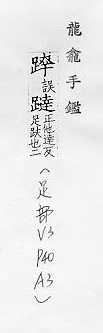 龍龕手鑑
踤誤躂正他達反足跌也二
(足部 V3 P40 A3)